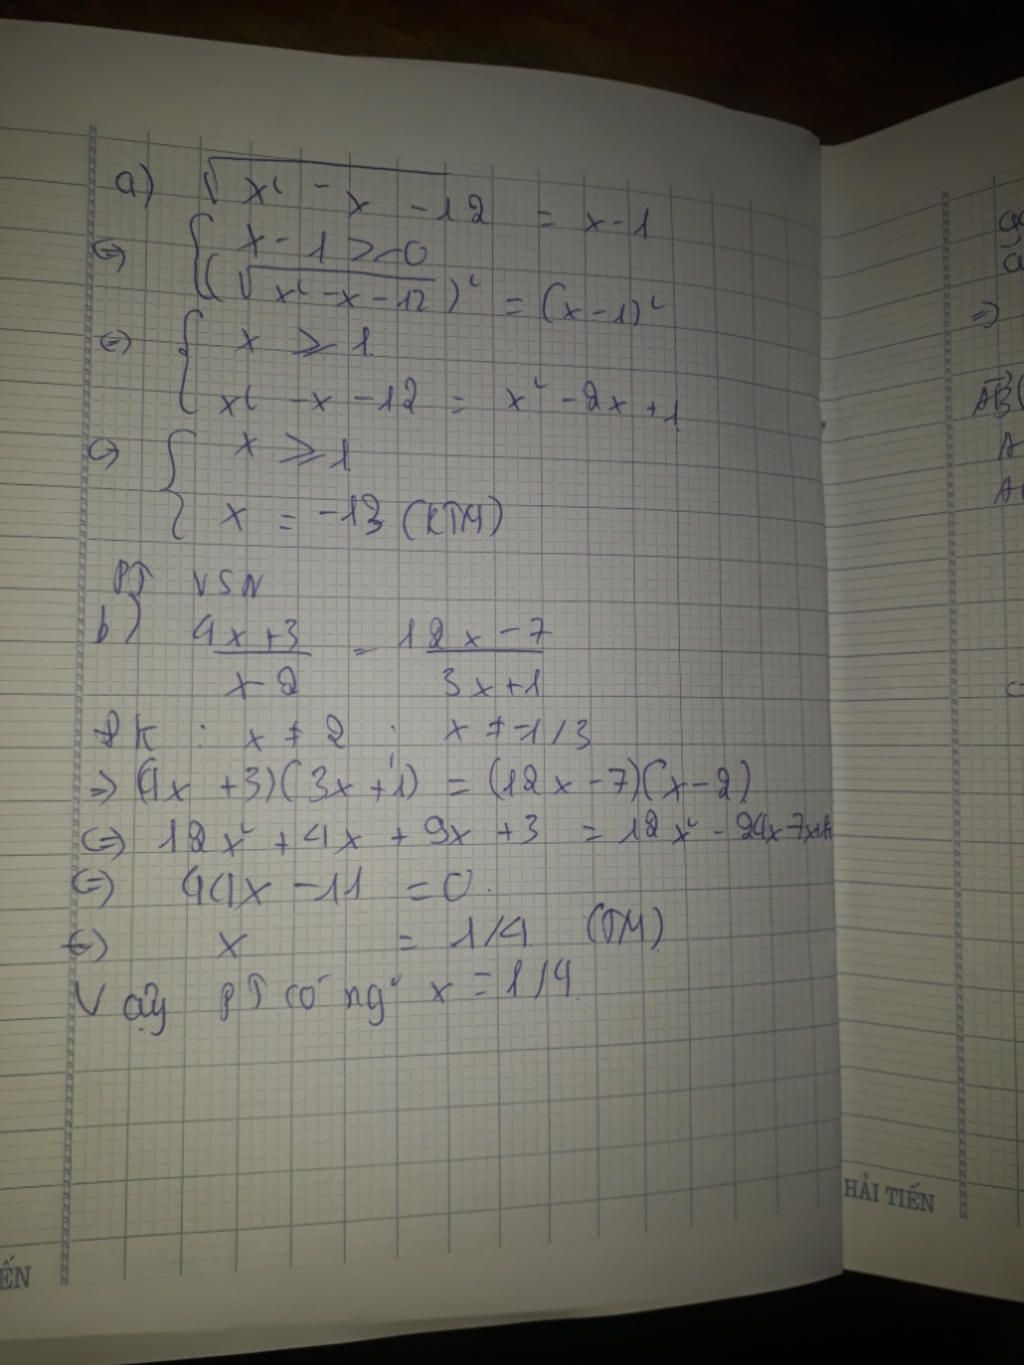 a) √x² - x - 12 = x - 1
⇔ { x - 1 ≥ 0
(√x² - x - 12)² = (x - 1)²
⇔ { x ≥ 1
x² - x - 12 = x² - 2x + 1
⇔ { x ≥ 1
x = -13 (KTM)
PT VSN
b) 4x+3/x-2 = 12x-7/3x+1
ĐK : x ≠ 2 ; x ≠ -1/3
⇒ (4x +3)(3x+1) = (12x -7)(x-2)
⇔ 12x² + 4x + 9x + 3 = 12x² - 24x 7x
⇔ 44x - 11 = 0
⇔ x = 1/4 (TM)
Vậy PT có ng° x = 1/4
HẢI TIẾN
ẾN